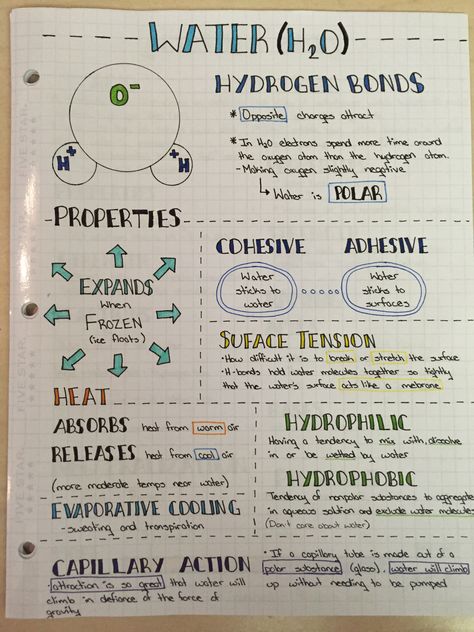 WATER (H₂O)
O⁻
H⁺
⁺H
HYDROGEN BONDS
* Opposite charges attract
* In H₂O electrons spend more time around
the oxygen atom than the hydrogen atom.
- Making oxygen slightly negative
↳ Water is POLAR
PROPERTIES
EXPANDS
When
FROZEN
(ice floats)
COHESIVE
ADHESIVE
Water
sticks to
water
Water
sticks to
surfaces
SUFACE TENSION
• How difficult it is to break or stretch the surface
• H-bonds hold water molecules together so tightly
that the water's surface acts like a mebrane
HEAT
ABSORBS heat from warm air
RELEASES heat from cool air
(more moderate temps near water)
HYDROPHILIC
Having a tendency to mix with, dissolve
in or be wetted by water
HYDROPHOBIC
Tendency of nonpolar substances to aggregate
in aqueous solution and exclude water molecules
(Don't care about water)
EVAPORATIVE COOLING
- sweating and transpiration
CAPILLARY ACTION
• attraction is so great that water will
climb in defiance of the force of
gravity
• If a capillary tube is made out of a
polar substance (glass), water will climb
up without needing to be pumped
FIVE STAR
FIVE STAR
FIVE STAR